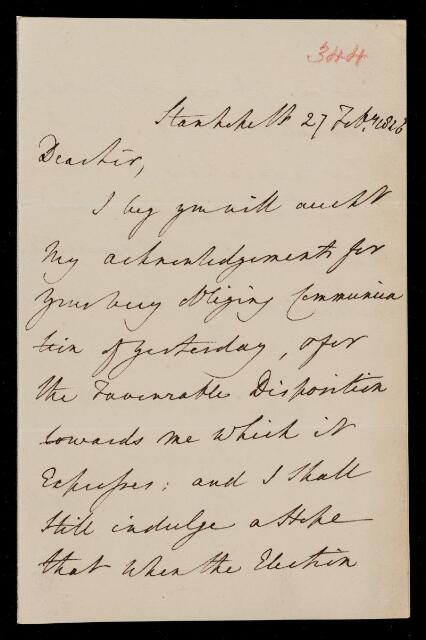 344
Stanhope St 27 Feby 1826
Dear Sir,
I beg you will accept
my acknowledgements for
your very obliging Communica
tion of yesterday, & for
the Favourable Disposition
towards me which it
Expresses; and I shall
still indulge a Hope
that when the Election